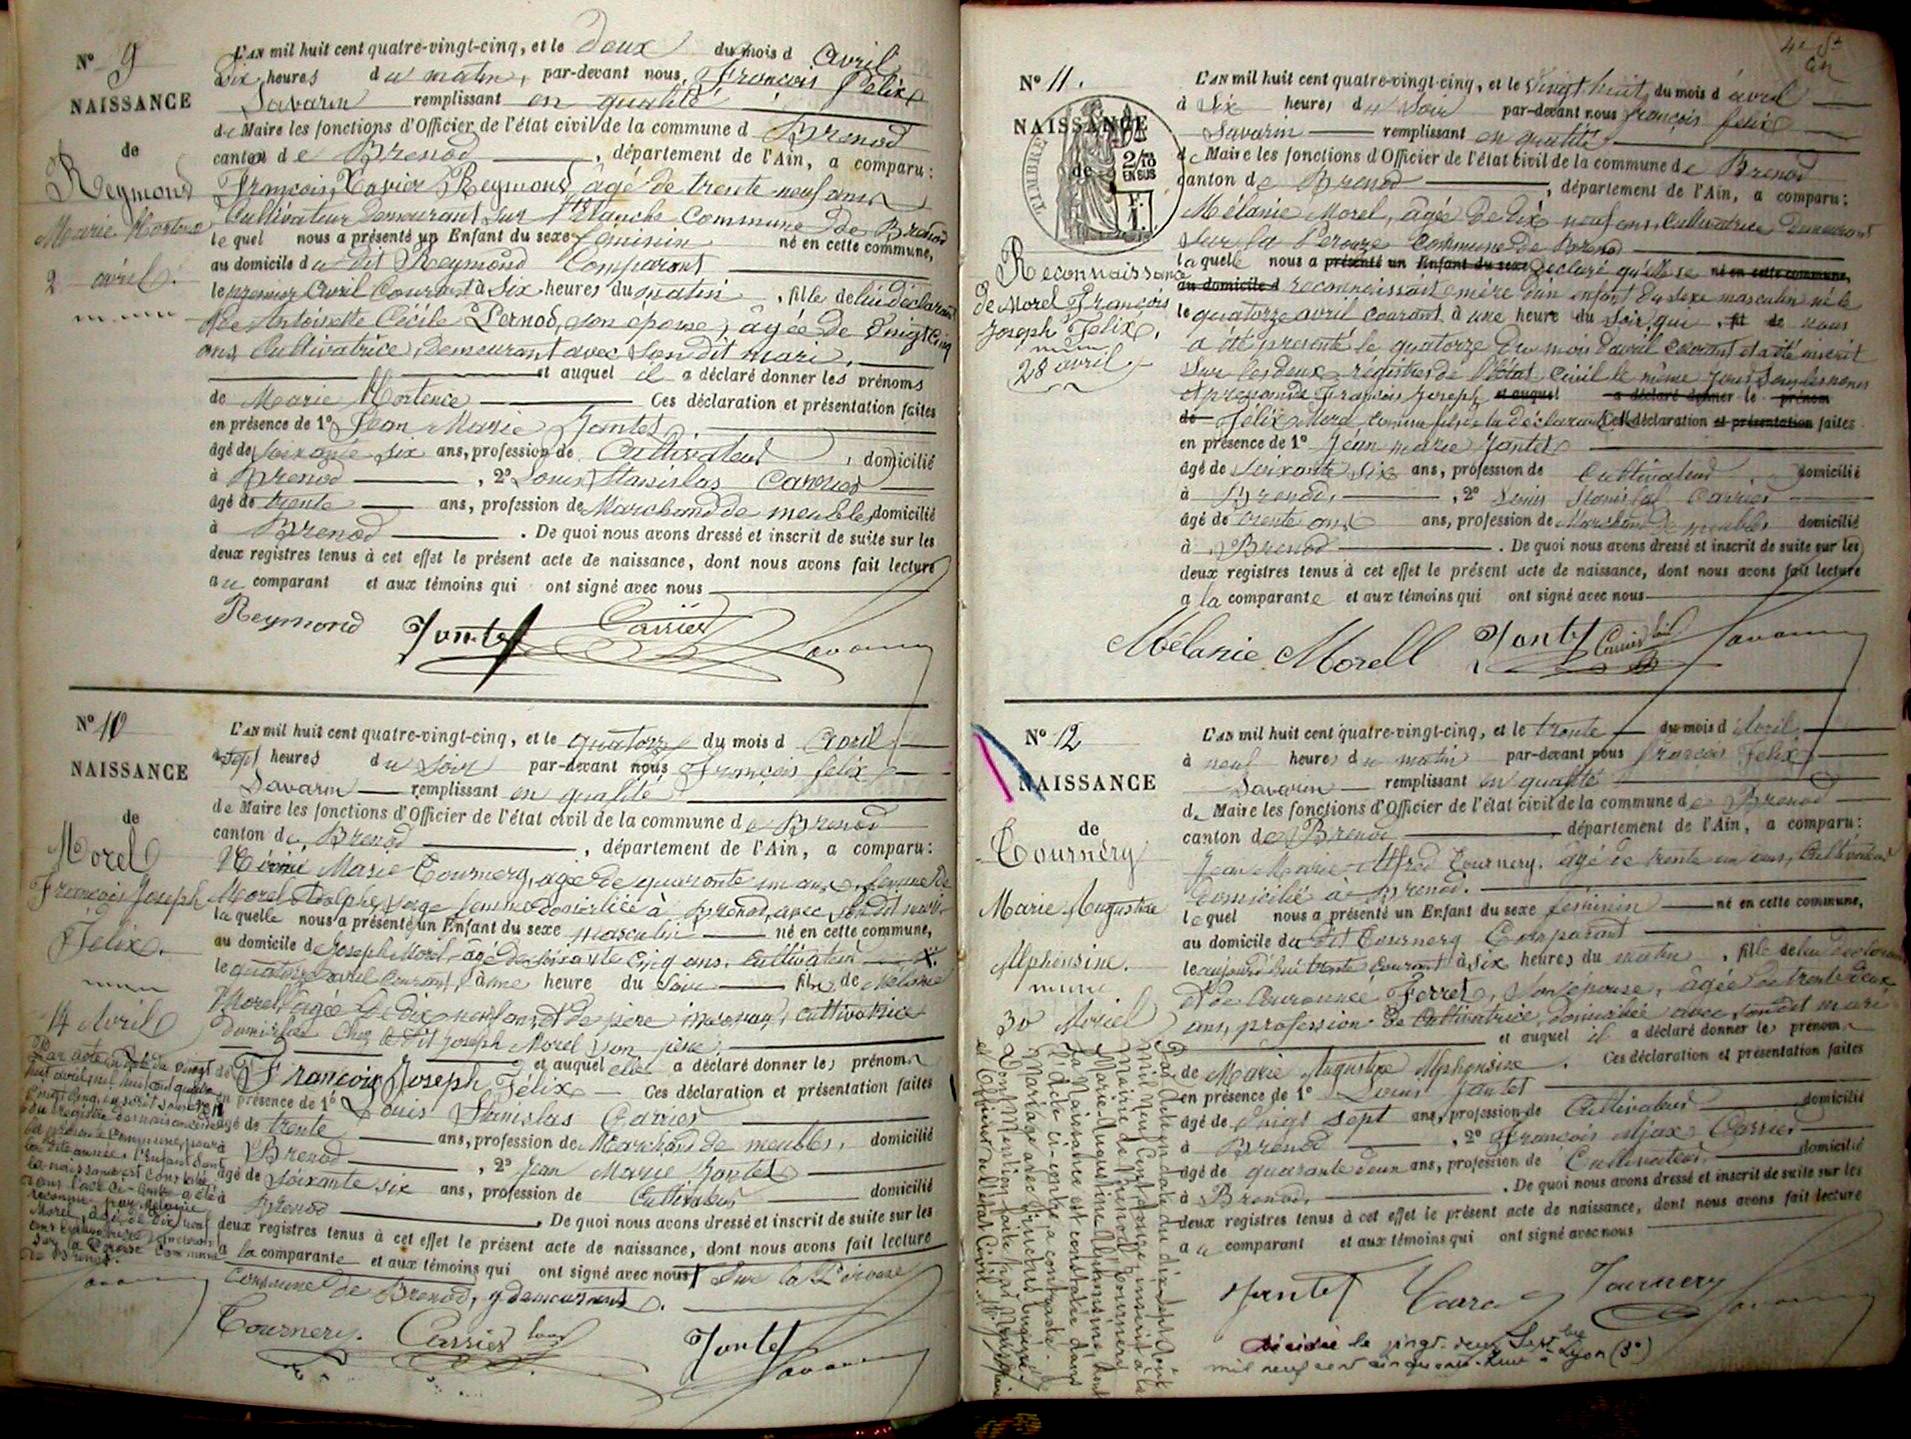 N° 9
NAISSANCE
de
Reymond
Marie Hortence
2 avril.
L'AN mil huit cent quatre-vingt-cinq, et le deux du mois d avril
à dix heures du matin, par-devant nous, François Félix
Savarin remplissant en qualité
de Maire les fonctions d'Officier de l'état civil de la commune d Brenod
canton de Brenod, département de l'Ain, a comparu:
François Xavier Reymond, âgé de trente neuf ans
Cultivateur demeurant sur Commune de Brenod
lequel nous a présenté un Enfant du sexe féminin né en cette commune,
au domicile du dit Reymond Comparant
le premier avril courant à six heures du matin, fille de lui déclarant
et de Antoinette Cécile Pernod, son épouse, âgée de vingt cinq
ans, Cultivatrice, demeurant avec son dit mari.
et auquel il a déclaré donner les prénoms
de Marie Hortence Ces déclaration et présentation faites
en présence de 1° Jean Marie Jantet
âgé de soixante six ans, profession de Cultivateur, domicilié
à Brenod, 2° Louis Stanislas Carrier
âgé de trente ans, profession de Marchand de meubles, domicilié
à Brenod. De quoi nous avons dressé et inscrit de suite sur les
deux registres tenus à cet effet le présent acte de naissance, dont nous avons fait lecture
au comparant et aux témoins qui ont signé avec nous
Reymond Jantet Carrier Savarin
N° 10
NAISSANCE
de
Morel
François Joseph
Félix.
14 Avril
L'AN mil huit cent quatre-vingt-cinq, et le quatorze du mois d avril
à sept heures du soir par-devant nous François félix
Savarin remplissant en qualité
de Maire les fonctions d'Officier de l'état civil de la commune de Brenod
canton de Brenod, département de l'Ain, a comparu:
Marie Tournery, âgée de quarante un ans, femme de
Morel Adolphe, sage femme domiciliée à Brenod, avec son dit mari
laquelle nous a présenté un Enfant du sexe masculin né en cette commune,
au domicile de Joseph Morel, âgé de soixante cinq ans, cultivateur
le quatorze avril courant, à une heure du soir fils de Mélanie
Morel, âgée de dix neuf ans et de père inconnu, cultivatrice
domiciliée chez le dit Joseph Morel son père
et auquel elle a déclaré donner les prénoms
de François Joseph Félix Ces déclaration et présentation faites
en présence de 1° Louis Stanislas Carrier
âgé de trente ans, profession de Marchand de meubles, domicilié
à Brenod, 2° Jean Marie Jantet
âgé de soixante six ans, profession de Cultivateur domicilié
à Brenod. De quoi nous avons dressé et inscrit de suite sur les
deux registres tenus à cet effet le présent acte de naissance, dont nous avons fait lecture
a la comparante et aux témoins qui ont signé avec nous Sur la Pérouse
commune de Brenod, y demeurant.
Tournery. Carrier Louis Jantet Savarin
Par acte en date du vingt
huit avril mil huit cent quatre
vingt cinq, inscrit sous N° 11
du registre des naissances de
la présente commune, pour
la dite année, l'Enfant dont
la naissance est constatée
dans l'acte ci-contre a été
reconnu par Mélanie
Morel, âgée de dix neuf
ans cultivatrice demeurant
sur la Pérouse commune
de Brenod.
Savarin
N° 11.
NAISSANCE
de
TIMBRE
2/10
EN SUS
Reconnaissance
de Morel François
Joseph Félix.
28 avril.
L'AN mil huit cent quatre-vingt-cinq, et le vingt huit du mois d avril
à six heures du soir par-devant nous françois félix
Savarin remplissant en qualité
de Maire les fonctions d'Officier de l'état civil de la commune de Brenod
canton de Brenod, département de l'Ain, a comparu:
Mélanie Morel, âgée de dix neuf ans, Cultivatrice demeurant
sur la Perouze commune de Brenod
laquelle nous a présenté un Enfant du sexe déclaré qu'elle se né en cette commune,
au domicile d reconnaissait mère d'un enfant du sexe masculin né le
le quatorze avril courant, à une heure du soir, qui fil de nous
a été présenté le quatorze du mois d'avril courant et a été inscrit
sur les deux régistres de l'Etat civil le même jour sous les noms
et prénoms de François Joseph et auquel a déclaré donner le prénom
de Félix Morel comme fils de la déclarante Ces déclaration et présentation faites
en présence de 1° Jean marie Jantet
âgé de soixante six ans, profession de Cultivateur, domicilié
à Brenod, 2° Louis Stanislas Carrier
âgé de trente ans ans, profession de Marchand de meubles domicilié
à Brenod. De quoi nous avons dressé et inscrit de suite sur les
deux registres tenus à cet effet le présent acte de naissance, dont nous avons fait lecture
a la comparante et aux témoins qui ont signé avec nous
Mélanie Morell Jantet Carrier Louis Savarin
N° 12
NAISSANCE
de
Tournery
Marie Augustine
Alphonsine.
30 Avril
L'AN mil huit cent quatre-vingt-cinq, et le trente du mois d Avril
à neuf heures du matin par-devant nous françois Félix
Savarin remplissant en qualité
de Maire les fonctions d'Officier de l'état civil de la commune de Brenod
canton de Brenod, département de l'Ain, a comparu:
Jean Marie Alfred Tournery. âgé de trente un ans, Cultivateur
domicilié à Brenod.
lequel nous a présenté un Enfant du sexe féminin né en cette commune,
au domicile du dit Tournery Comparant
le aujourd'hui trente courant à six heures du matin, fille de lui déclarant
et de Laurence Ferret, son épouse, âgée de trente deux
ans, profession de Cultivatrice, domiciliée avec son dit mari
et auquel il a déclaré donner les prénoms
de Marie Augustine Alphonsine. Ces déclaration et présentation faites
en présence de 1° Louis Jantet
âgé de vingt sept ans, profession de Cultivateur domicilié
à Brenod, 2° François Ajax Carrier
âgé de quarante deux ans, profession de Cultivateur, domicilié
à Brenod. De quoi nous avons dressé et inscrit de suite sur les
deux registres tenus à cet effet le présent acte de naissance, dont nous avons fait lecture
au comparant et aux témoins qui ont signé avec nous
Jantet Tournery Savarin
Décédée le vingt-deux Septbre
mil neuf cent cinquante à Lyon (3e)
Par acte en date du dix-sept Août
mil neuf cent douze, inscrit à la
Mairie de Brenod, Tournery
Marie-Augustine Alphonsine, dont
la Naissance est constatée dans
l'acte ci-contre, a contracté
Mariage avec
Dont Mention faite par Nous, Maire
et Officier de l'Etat Civil